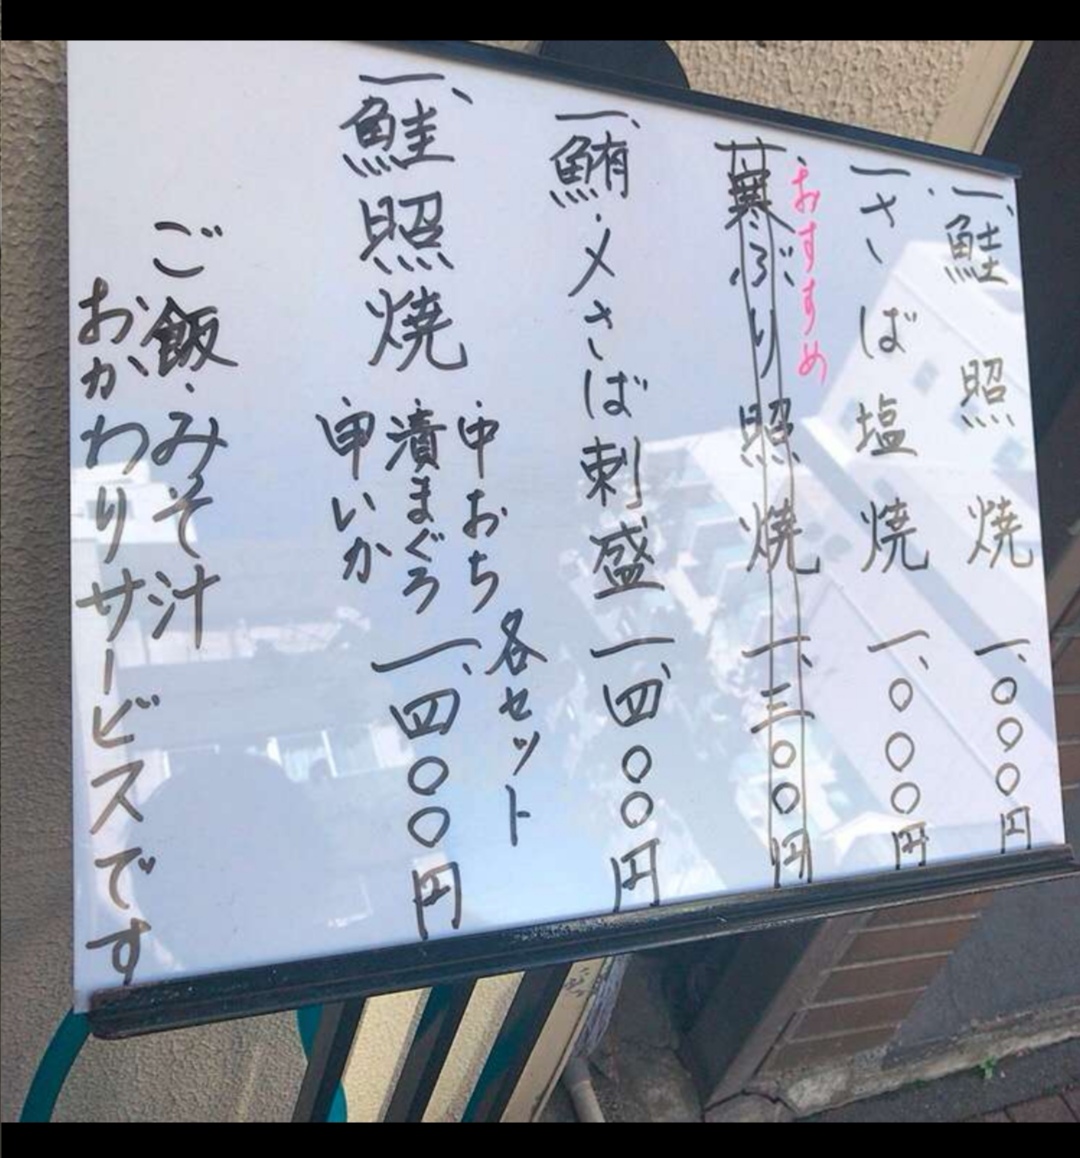 一、鮭照焼 一、〇〇〇円
一、さば塩焼 一、〇〇〇円
おすすめ
一、寒ぶり照焼 一、三〇〇円
一、鮪・〆さば刺盛 一、四〇〇円
一、鮭照焼
中おち
漬まぐろ
甲いか
各セット
一、四〇〇円
ご飯・みそ汁
おかわりサービスです